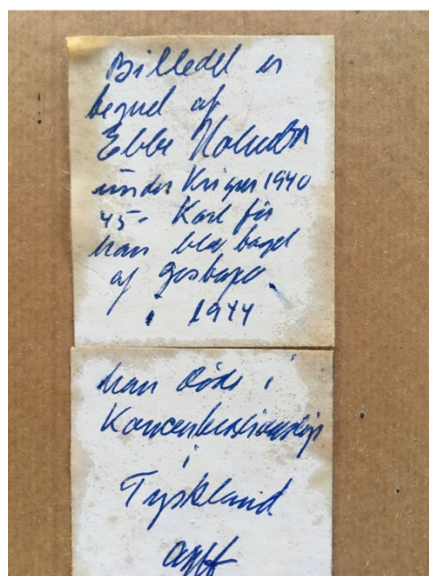 Billedet er
tegnet af
Ebbe
under Krigen 1940
45 - Kort før
han blev taget
af gestapo.
i 1944
han døde i
Koncentrationslejr
i
Tyskland